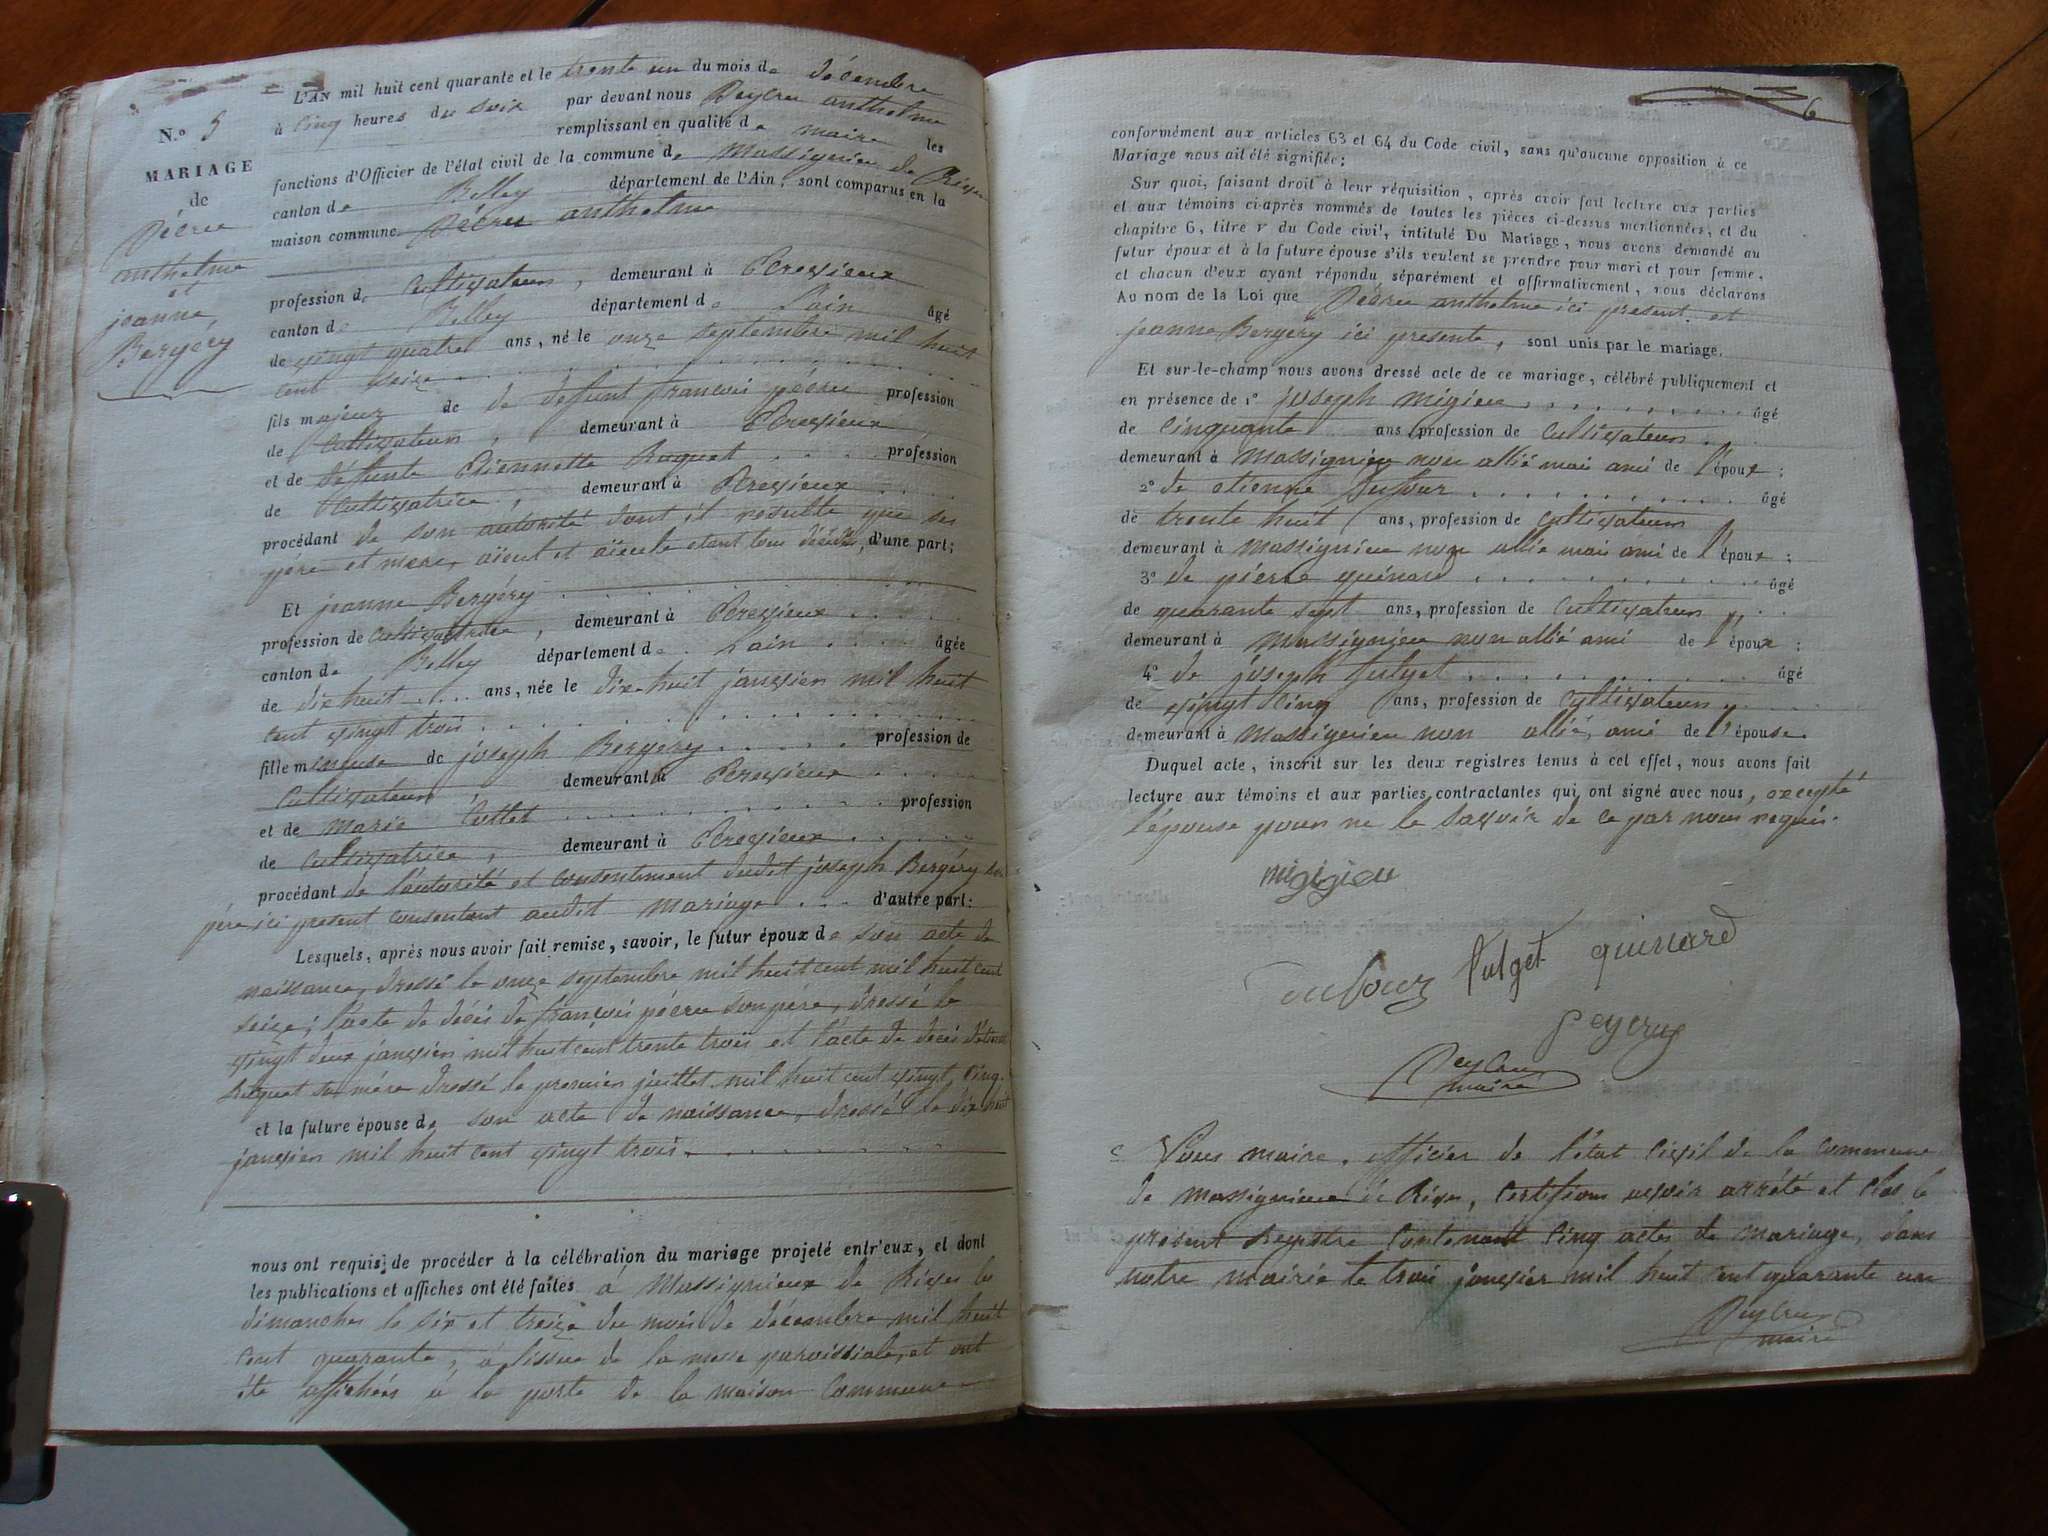 N.º 5
MARIAGE
de
Pécru
anthelme
et
jeanne
Bergéry
L'AN mil huit cent quarante et le trente un du mois de décembre
à cinq heures du soir par devant nous Peycru anthelme
remplissant en qualité de maire les
fonctions d'Officier de l'état civil de la commune de Massignieu de Rives
canton de Belley département de l'Ain, sont comparus en la
maison commune Pécru anthelme
profession de Cultivateur, demeurant à
canton de Belley département de lain âgé
de vingt quatre ans, né le onze septembre mil huit
cent seize
fils majeur de de défunt francois pécru profession
de Cultivateur, demeurant à
et de défunte Etiennette Roquet profession
de Cultivatrice, demeurant à
procédant de son autorité dont il resulte que ses
père et mere, aïeul et aïeule etant tous décédés, d'une part;
Et jeanne Bergéry
profession de Cultivatrice, demeurant à
canton de Belley département de lain âgée
de dix huit ans, née le dix-huit janvier mil huit
cent vingt trois
fille mineuse de joseph Bergery profession de
Cultivateur, demeurant à
et de marie Cullet profession
de Cultivatrice, demeurant à
procédant de l'autorité et consentiment dudit joseph Bergéry son
père ici present consentant audit mariage d'autre part:
Lesquels, après nous avoir fait remise, savoir, le futur époux de son acte de
naissance, dressé le onze septembre mil huit cent mil huit cent
seize; l'acte de décès de françois pécru son père, dressé le
vingt deux janvier mil huit cent trente trois et l'acte de decès
Roquet sa mère dressé le premier juillet mil huit cent vingt cinq.
et la future épouse de son acte de naissance, dressé le dix huit
janvier mil huit cent vingt trois.
nous ont requis de procéder à la célébration du mariage projeté entr'eux, et dont
les publications et affiches ont été faites à Massignieux de Rives les
dimanches le six et treize du mois de décembre mil huit
cent quarante, à lissue de la messe paroissiale, et ont
été affichées à la porte de la maison commune
6
conformément aux articles 63 et 64 du Code civil, sans qu'aucune opposition à ce
Mariage nous ait été signifiée;
Sur quoi, faisant droit à leur réquisition, après avoir fait lecture aux parties
et aux témoins ci-après nommés de toutes les pièces ci-dessus mentionnées, et du
chapitre 6, titre v du Code civil, intitulé Du Mariage, nous avons demandé au
futur époux et à la future épouse s'ils veulent se prendre pour mari et pour femme.
et chacun d'eux ayant répondu séparément et affirmativement, nous déclarons
Au nom de la Loi que Pécru anthelme ici present et
jeanne Bergéry ici presente, sont unis par le mariage.
Et sur-le-champ nous avons dressé acte de ce mariage, célébré publiquement et
en présence de 1º joseph migieu âgé
de cinquante ans, profession de Cultivateur
demeurant à Massignieu non allié mais ami de l'époux;
2º de etienne Dufour âgé
de trente huit ans, profession de Cultivateur
demeurant à Massignieu non allié mais ami de l'époux;
3º de pierre guinard âgé
de quarante sept ans, profession de Cultivateur
demeurant à Massignieu non allié ami de l'époux;
4º de joseph âgé
de vingt cinq ans, profession de Cultivateur
demeurant à Massignieu non allié, ami de l'épouse.
Duquel acte, inscrit sur les deux registres tenus à cet effet, nous avons fait
lecture aux témoins et aux parties contractantes qui ont signé avec nous, excepté
l'épouse pour ne le savoir de ce par nous requis.
migieu
Dufour guinard
peycru
Peycru
maire
Nous maire, officier de l'état civil de la commune
de massignieu de Rives, certifions avoir arrêté et clos le
présent Registre contenant cinq actes de mariage, dans
notre mairie le trois janvier mil huit cent quarante un
Peycru
maire